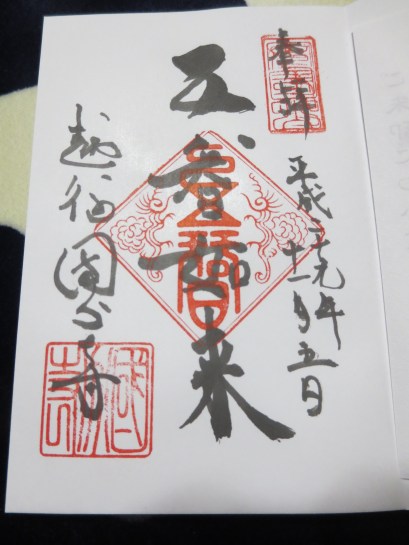 奉拝
平成二十九年
十一月五日
五智如来
越後國分寺